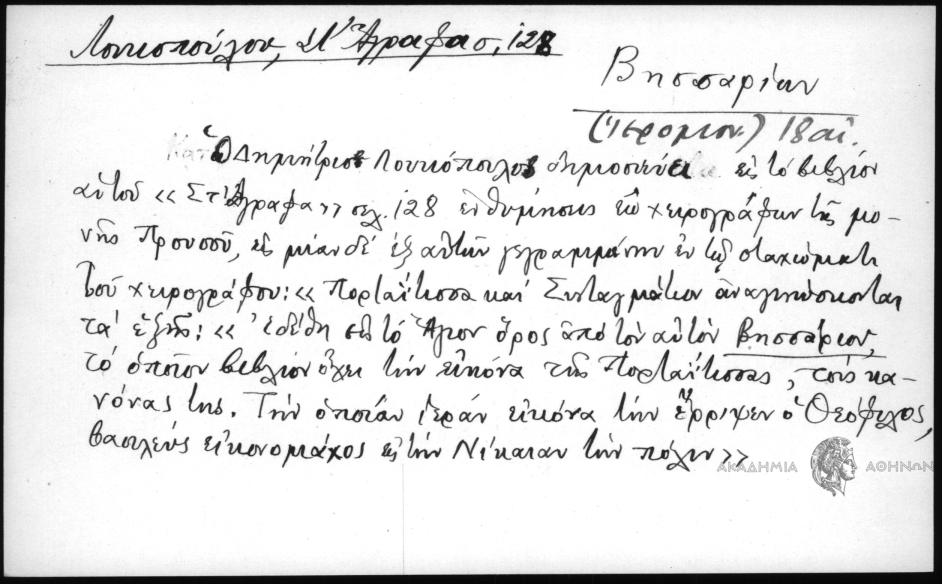 Λουκοπούλου, Στ' Ἄγραφα σ. 128
Βησσαρίων
(ἱερομον.) 18 αἰ.
Ὁ Δημήτριος Λουκόπουλος δημοσιεύει εἰς τὸ βιβλίον
αὐτοῦ «Στ' Ἄγραφα» σελ. 128 ἐνθυμήσεις ἐκ χειρογράφων τῆς μο-
νῆς Προυσοῦ, εἰς μίαν δέ ἐξ αὐτῶν γεγραμμένην ἐν τῷ σταχώματι
τοῦ χειρογράφου: «Πορταΐτισσα καί Συνταγμάτιον ἀναγινώσκονται
τά ἑξῆς: «Ἐδέθη εἰς τό Ἅγιον Ὄρος ἀπό τόν αὐτόν Βησσάριον,
τό ὁποῖον βιβλίον ἔχει τήν εἰκόνα τῆς Πορταΐτισσας, τούς κα-
νόνας της. Τήν ὁποίαν ἱεράν εἰκόνα τήν ἔρριψεν ὁ Θεόφιλος,
βασιλεύς εἰκονομάχος εἰς τήν Νίκαιαν τήν πόλιν»
ΑΚΑΔΗΜΙΑ ΑΘΗΝΩΝ